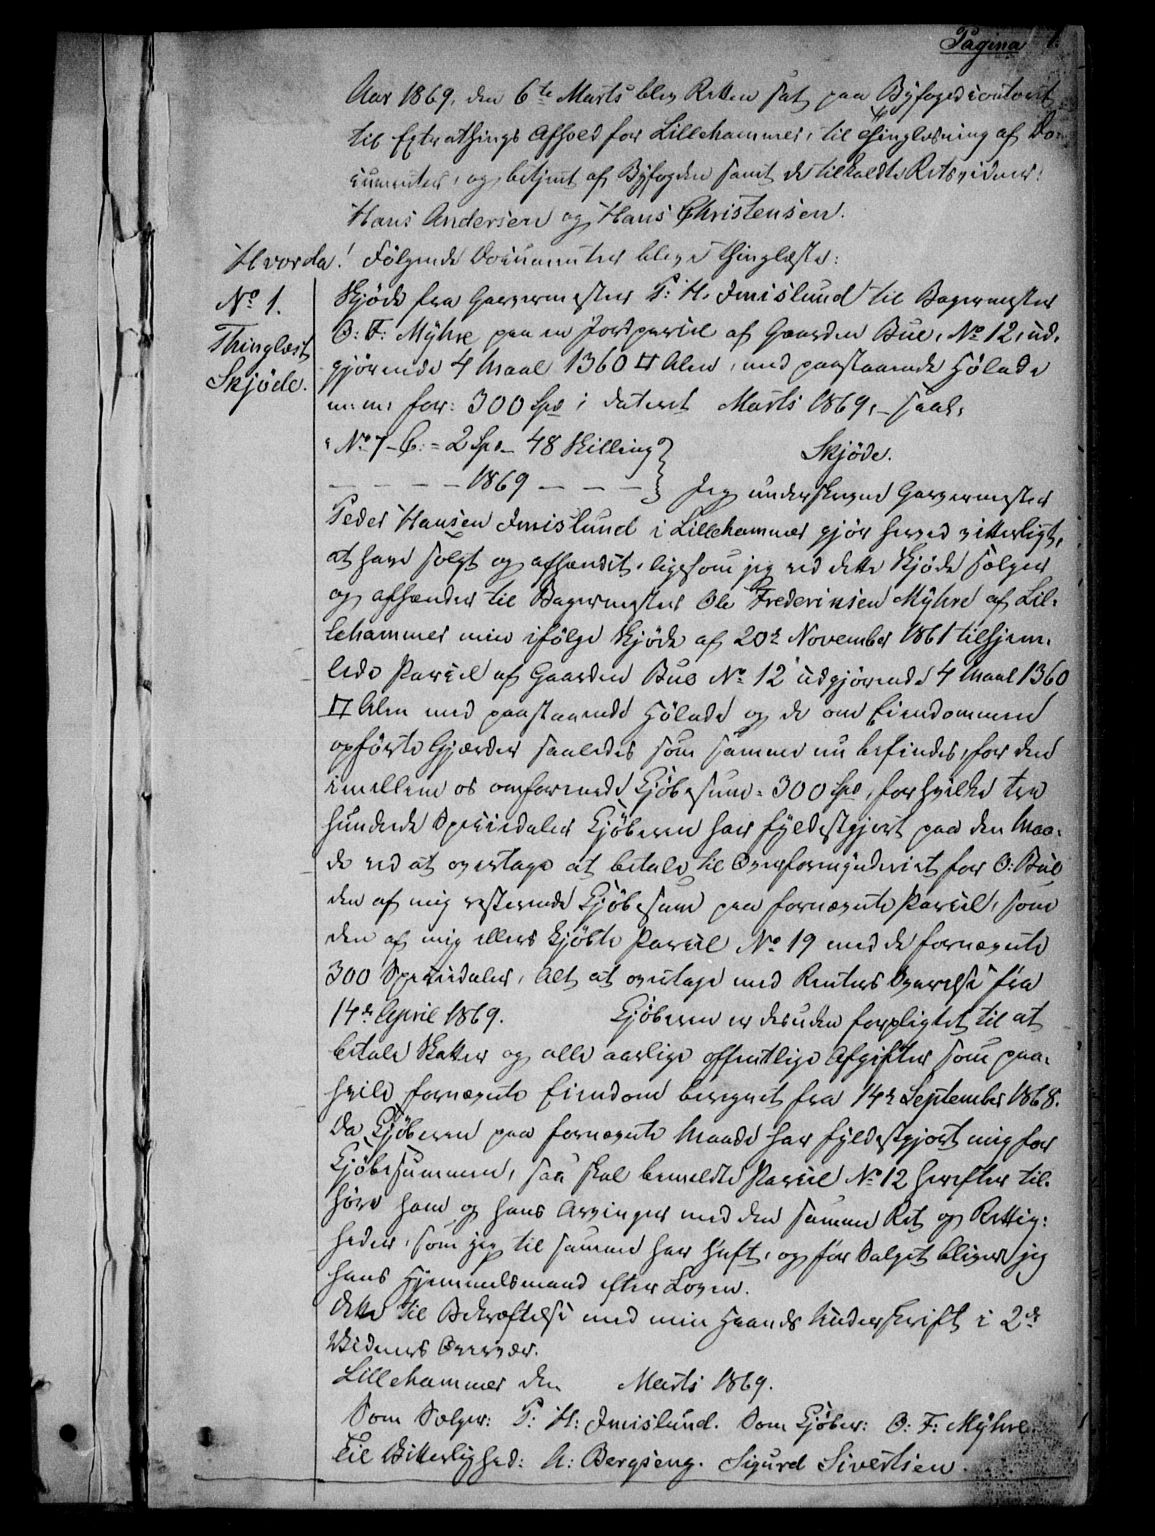 Pagina 1.
Aar 1869, den 6te Marts blev Retten sat paa Byfogedcontoret
til Extrathings Afhold for Lillehammer, til Thinglæsning af Do-
cumenter, og betjent af Byfogden samt de tilkaldte Retsvidner:
Hans Andersen og Hans Christensen.
Hvorda! Følgende Documenter bleve thinglæste:
No 1.
Thinglæst
Skjöde.
Skjöde fra Garvermester P: H. Imislund til Bagermester
O: F: Mÿhre paa en Jordparcel af Gaarden Bue, No 12, ud-
gjörende 4 Maal 1360 □ Alen, med paastaaende Hölade
m: m: for: 300 Spd; dateret Marts 1869, saal.
No 7 - C: = 2 Spd - 48 Skilling
– – – – 1869 – – –
Skjöde.
Jeg underskrevne Garvermester
Peder Hansen Imislund i Lillehammer gjör herved vitterligt,
at have solgt og afhændet, ligesom jeg ved dette Skjöde sælger
og afhænder til Bagermester Ole Frederiksen Mÿhre af Lil-
lehammer min ifölge Skjöde af 20de November 1861 tilhjem-
lede Parcel af Gaarden Bue No 12 udgjörende 4 Maal 1360
□ Alen med paastaaende Hölade og de om Eiendommen
opförte Gjærder saaledes som samme nu befindes, for den
imellem os omforenede Kjöbesum = 300 Spd, for hvilke tre
hundrede Speciedaler Kjöberen har fyldestgjort paa den Maa-
de ved at overtage at betale til Overformynderiet for O: Bue
den af mig resterende Kjöbesum paa fornævnte Parcel, som
den af mig ellers kjöbte Parcel No 19 med de fornævnte
300 Speciedaler, Alt at overtage med Renters Svarelse fra
14de April 1869. Kjöberen er desuden forpligtet til at
betale Skatter og alle aarlige offentlige Afgifter som paa-
hvile fornævnte Eiendom beregnet fra 14de September 1868.
Da Kjöberen paa fornævnte Maade har fyldestgjort mig for
Kjöbesummen, saa skal bemeldte Parcel No 12 herefter til-
höre ham og hans Arvinger med den samme Ret og Rettig-
heder, som jeg til samme har havt, og for Salget bliver jeg
hans Hjemmelsmand efter Loven.
Dette til Bekræftelse med min Haands Underskrift i 2de
Vidners Overvær.
Lillehammer den Marts 1869.
Som Sælger: P: H: Imislund. Som Kjöber: O: F: Mÿhre.
Til Vitterlighed: A: Bergseng. Sigurd Sivertsen.